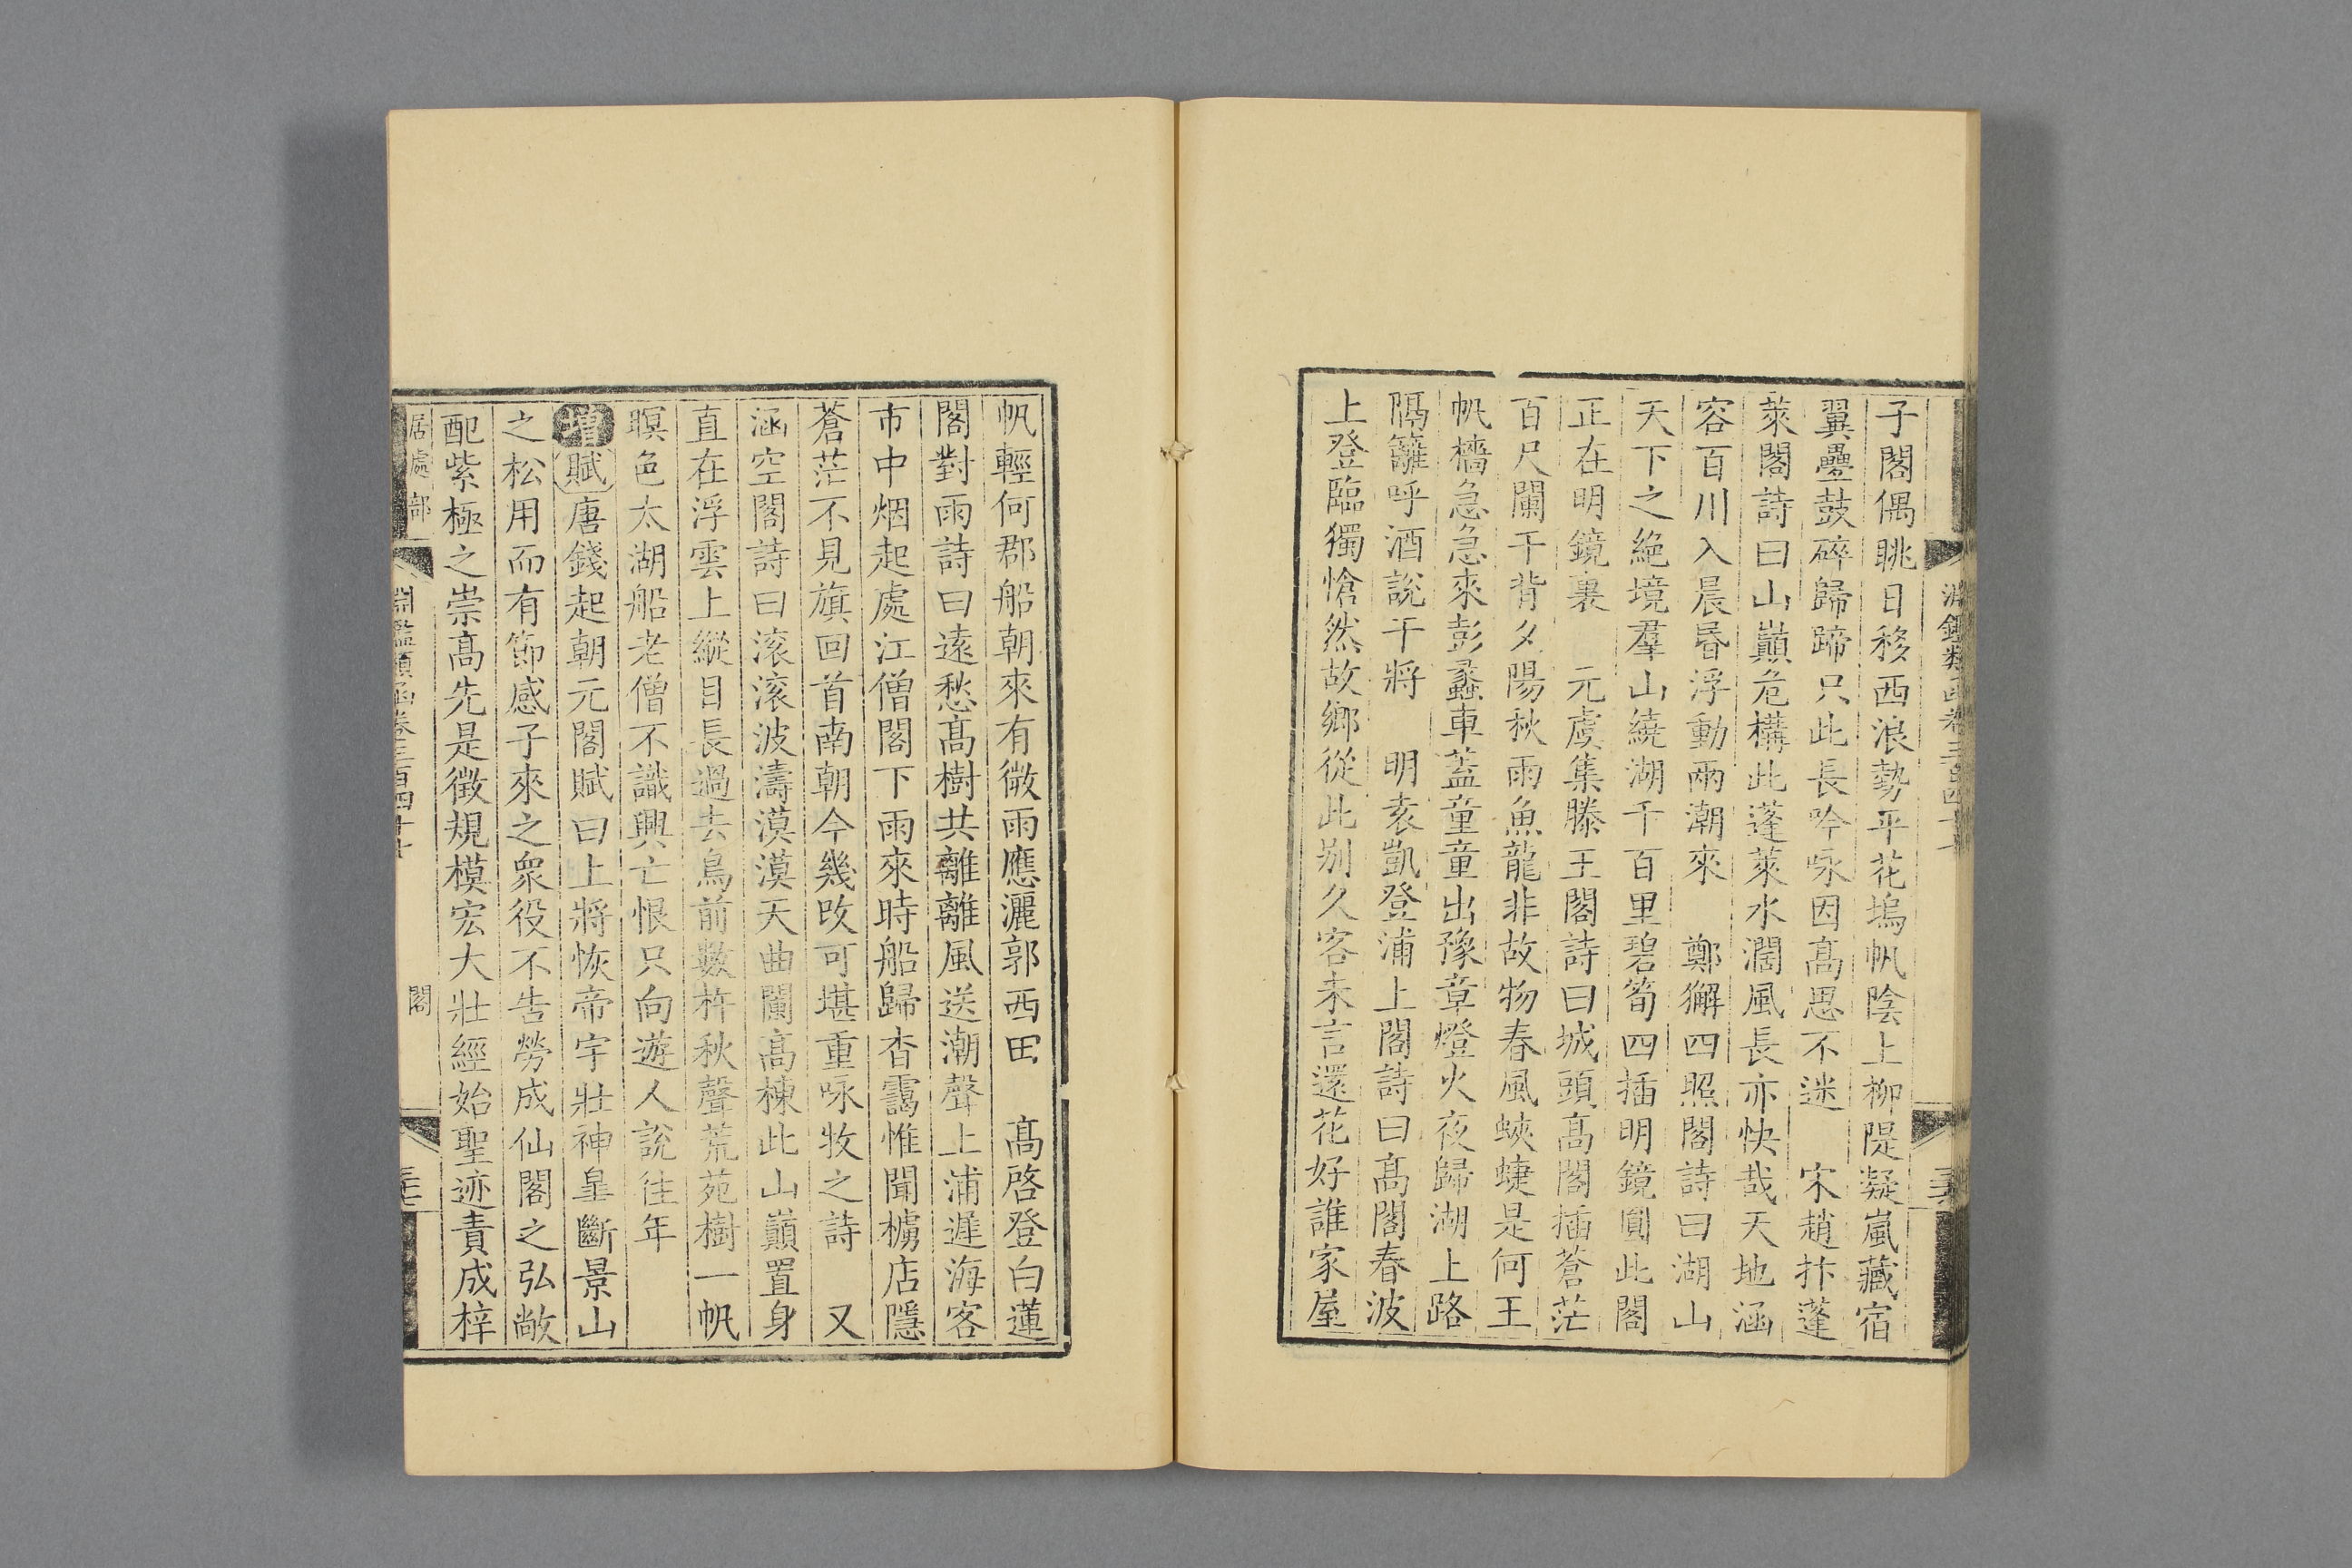 子閣偶眺日移西浪勢平花塢帆陰上柳隄凝嵐藏宿
翼疊鼓碎歸蹄只此長吟咏因髙思不迷　宋趙抃蓬
萊閣詩曰山巔危構此蓬萊水濶風長亦快哉天地涵
容百川入晨昬浮動兩潮來　鄭獬四照閣詩曰湖山
天下之絶境羣山繞湖千百里碧筍四插明鏡圓此閣
正在明鏡裏　元虞集滕王閣詩曰城頭髙閣插蒼茫
百尺闌干背夕陽秋雨魚龍非故物春風蛺蝶是何王
帆檣急急來彭蠡車葢童童出豫章燈火夜歸湖上路
隔籬呼酒說干將　明袁凱登浦上閣詩曰髙閣春波
上登臨獨愴然故鄉從此别久客未言還花好誰家屋
帆輕何郡船朝來有微雨應灑郭西田　髙啓登白蓮
閣對雨詩曰遠愁髙樹共離離風送潮聲上浦遲海客
市中烟起處江僧閣下雨來時船歸杳靄惟聞櫓店隱
蒼茫不見旗回首南朝今幾改可堪重咏牧之詩　又
涵空閣詩曰滚滚波濤漠漠天曲闌髙棟此山巔置身
直在浮雲上縱目長過去鳥前數杵秋聲荒苑樹一帆
暝色太湖船老僧不識興亡恨只向遊人說往年
增賦唐錢起朝元閣賦曰上將恢帝宇壯神皇斷景山
之松用而有節感子來之衆役不告勞成仙閣之弘敞
配紫極之崇髙先是徵規模宏大壯經始聖迹責成梓
居處部　淵鑑類函卷三百四十　閣